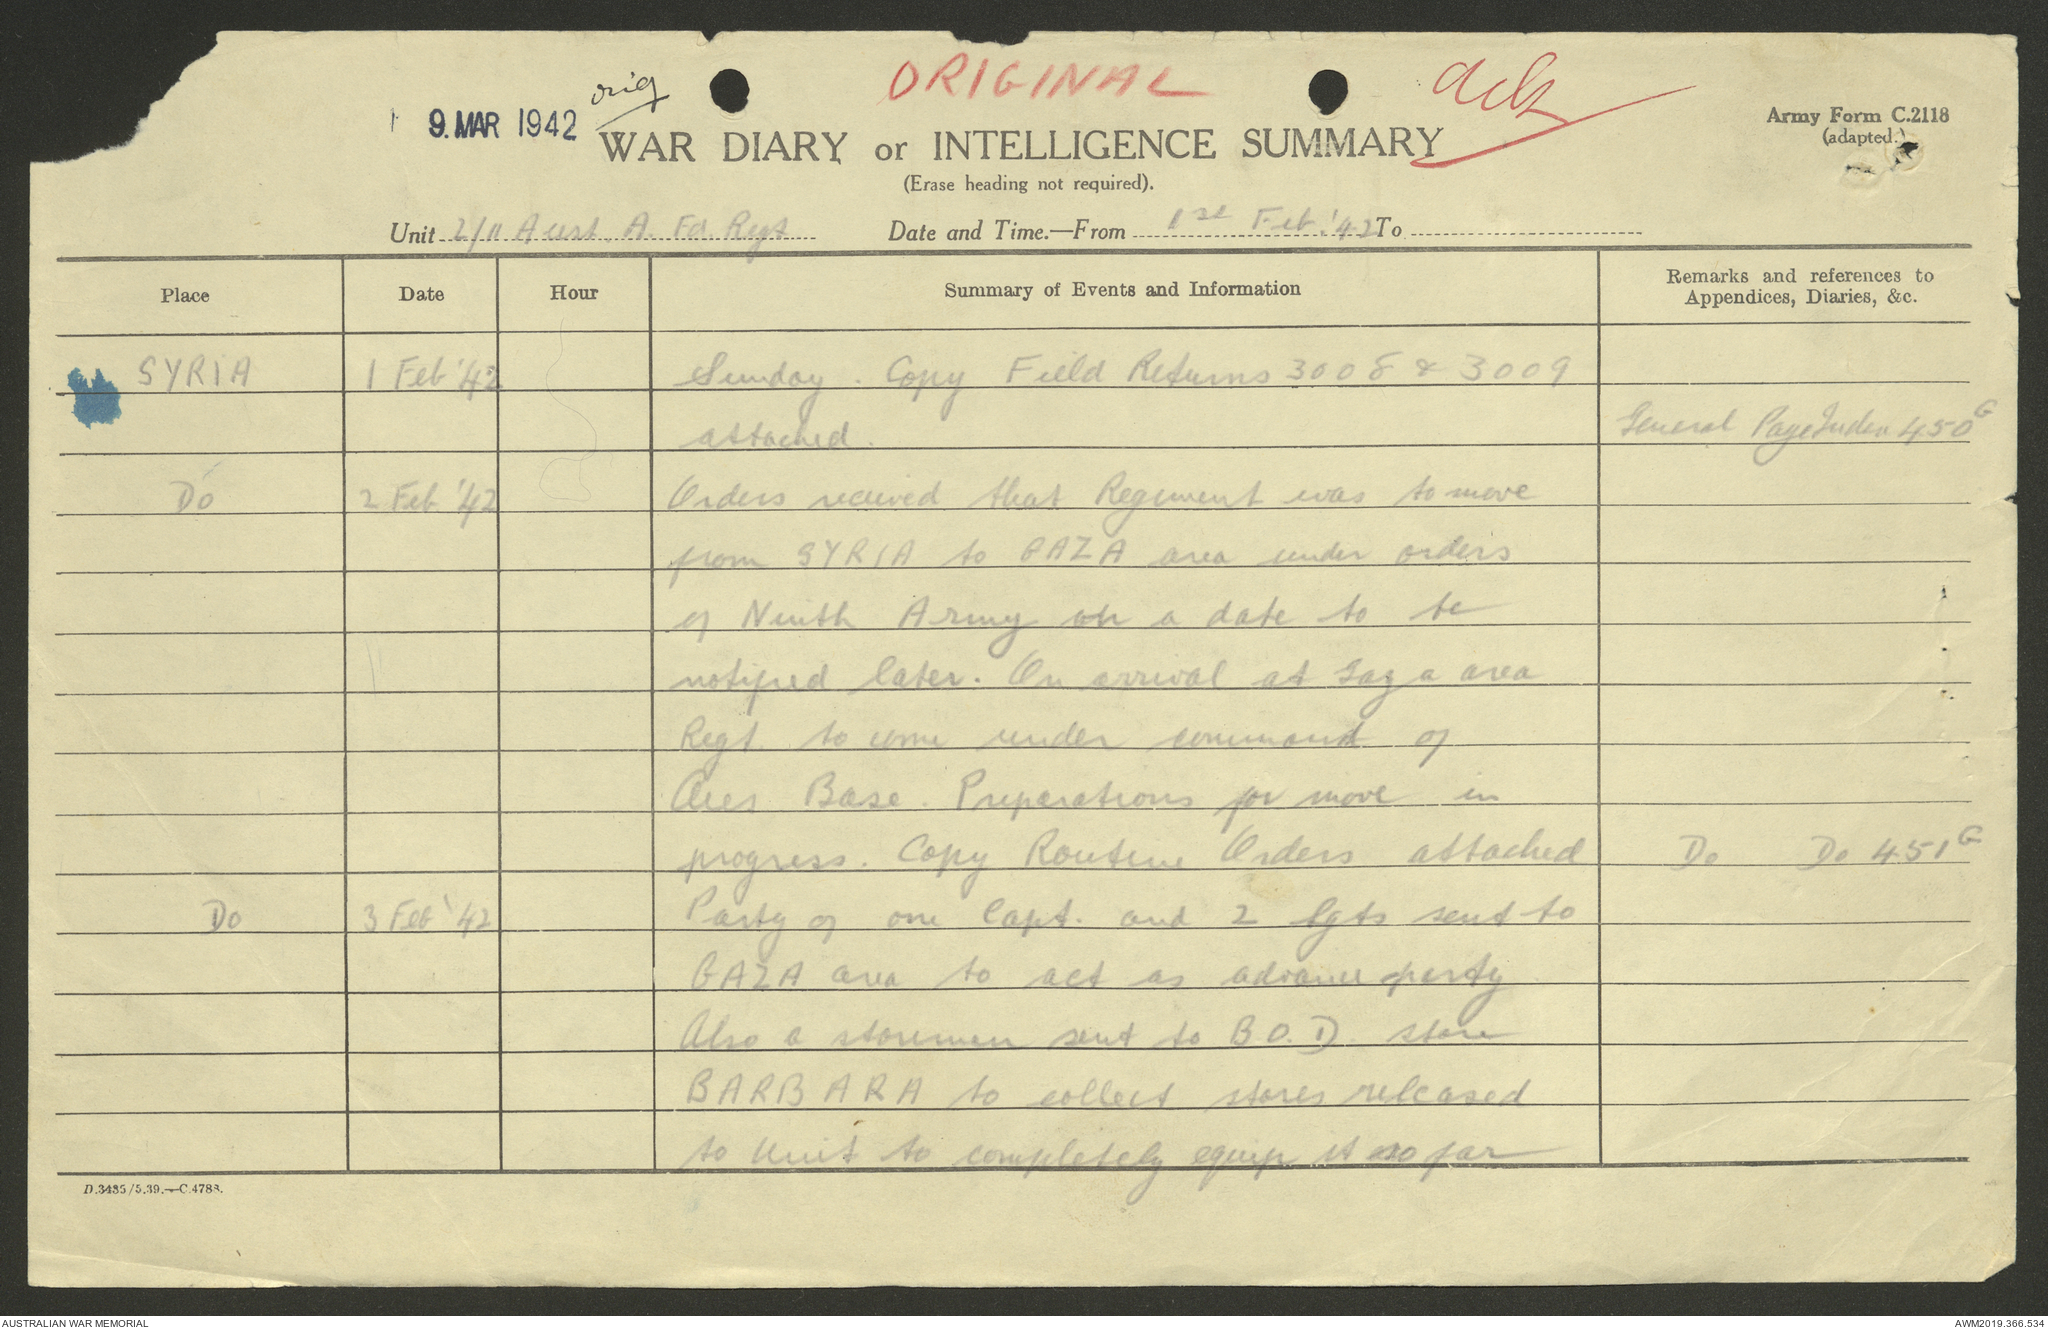 9. MAR 1942
orig
ORIGINAL
WAR DIARY or INTELLIGENCE SUMMARY
Army Form C.2118
(adapted.)
(Erase heading not required).
Unit 2/11 Aust. A. Fd. Regt Date and Time.—From 1st Feb. '42 To
Place Date Hour Summary of Events and Information Remarks and references to
Appendices, Diaries, &c.
SYRIA 1 Feb '42 Sunday. Copy Field Returns 3008 & 3009
attached. General Page Index 450G
Do 2 Feb '42 Orders received that Regiment was to move
from SYRIA to GAZA area under orders
of Ninth Army on a date to be
notified later. On arrival at Gaza area
Regt. to come under command of
Base. Preparations for move in
progress. Copy Routine Orders attached Do Do 451G
Do 3 Feb '42 Party of one Capt. and 2 Sgts sent to
GAZA area to act as advance party
Also a storeman sent to B.O.D. store
BARBARA to collect stores released
to Unit to completely equip it so far
D.3485/5.39.—C.4788.
AUSTRALIAN WAR MEMORIAL
AWM2019.366.534